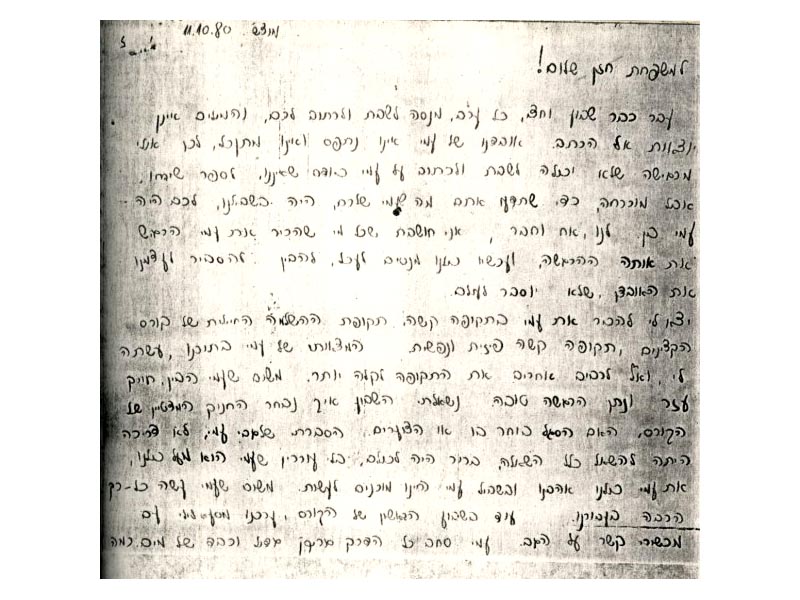 מוצ״ש 11.10.80
למשפחת חזן שלום!
עבר כבר שבוע וחצי, כל ערב, מנסה לשבת ולכתוב לכם, והמילים אינן
יוצאות אל הכתב. אובדנו של עמי אינו נתפס ואינו מתקבל, לכן אולי
מרגישה שלא יכולה לשבת ולכתוב על עמי כיודעת שאיננו, לספר שירותו,
אבל מוכרחה, כדי שתדעו אתם מה שעמי שלכם, היה בשבילנו, לכם היה
עמי בן לנו, אח וחבר, אני חושבת שכל מי שהכיר את עמי הרגיש
את אותה ההרגשה, ועכשיו כולנו מנסים לעכל, להבין להסביר לעצמנו
את האובדן, שלא יוסבר לעולם.
יצא לי להכיר את עמי בתקופה קשה, תקופת ההשלמה החילית של קורס
הקצינים, תקופה קשה פיזית ונפשית. המצאותו של עמי בתוכנו, עשתה
לי, ואולי לרבים אחרים את התקופה לקלה יותר. משום שעמי הבין, חייך
עזר ונתן הרגשה טובה. נשאלתי השבוע איך נבחר החניך המצטיין של
הקורס, האם הסגל בוחר בו או הצוערים. הסברתי שלגבי עמי, לא צריכה
היתה להשאל כלל השאלה, ברור היה לכולם, בלי עוררין שעמי הוא מעל כולנו,
את עמי כולנו אהבנו ובשביל עמי היינו מוכנים לעשות. משום שעמי עשה כל-כך
הרבה בעבורנו. עוד בשבוע הראשון של הקורס, ערכנו מסע לילי עם
מכשירי קשר על הגב. עמי סחב כל הדרך גריקן גדול וכבד של מים. כמה